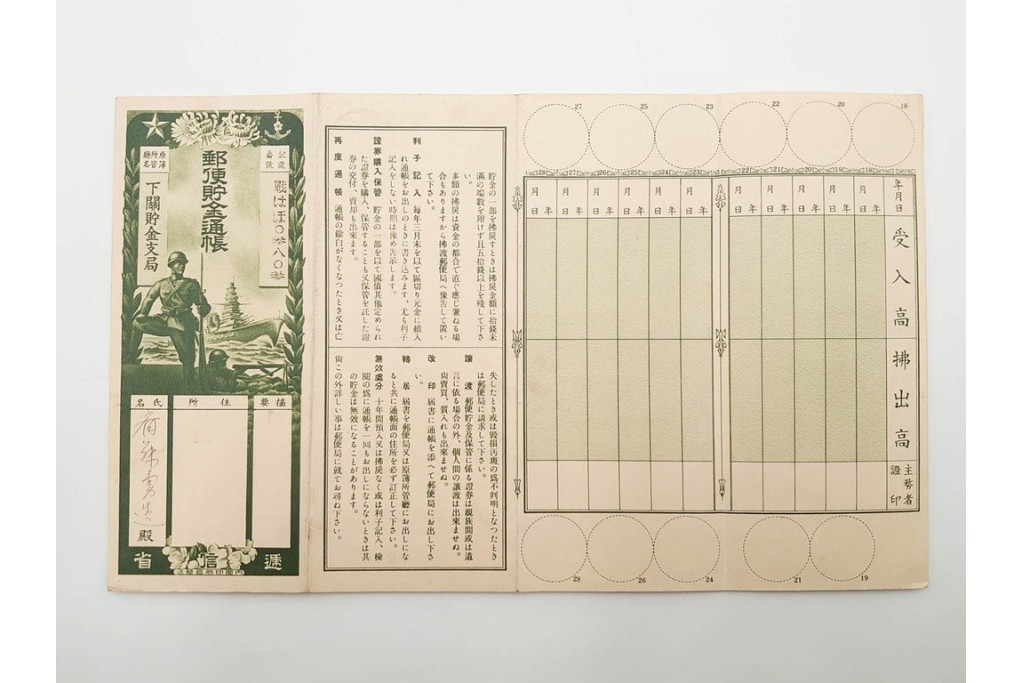 郵便貯金通帳
記號
番號
原簿所管廳名
下關貯金支局
摘要
住所
氏名
殿
遞信省
貯金の一部を拂戻すときは拂戻金額に拾錢未
滿の端數を附けず且五拾錢以上を殘して下さ
い。
多額の拂戻は資金の都合で直ぐ應じ兼ねる場
合もありますから拂渡郵便局へ豫告して置い
て下さい。
利子記入 每年三月末を以て區切り元金に組入
れ通帳をお出しのときに書き込みます、尤も利子
記入をしない時期は豫め告示します。
證券購入保管 貯金の一部を以て國債其他定められ
た證券を購入、保管することも又保管を託した證
券の交付、賣却も出來ます。
再度通帳 通帳の餘白がなくなつたとき又は亡
失したとき或は毀損汚斑の爲不判明となつたとき
は郵便局に請求して下さい。
讓渡 郵便貯金及保管に係る證券は親族間或は遺
言に依る場合の外、個人間の讓渡は出來ませぬ。
尙賣買、質入れも出來ませぬ。
改印 屆書に通帳を添へて郵便局にお出し下さ
い。
轉居 屆書を郵便局又は原簿所管廳にお出しにな
ると共に通帳面の住所を必ず訂正して下さい。
無效處分 十年間預入又は拂戻なく或は利子記入、檢
閱の爲に通帳を一回もお出しにならないときは其
の貯金は無效になることがあります。
尙この外詳しい事は郵便局に就てお尋ね下さい。
27 25 23 22 20 18
年月日
受入高
拂出高
主務者
證印
年月日 年月日 年月日 年月日 年月日 年月日 年月日 年月日 年月日 年月日
28 26 24 21 19